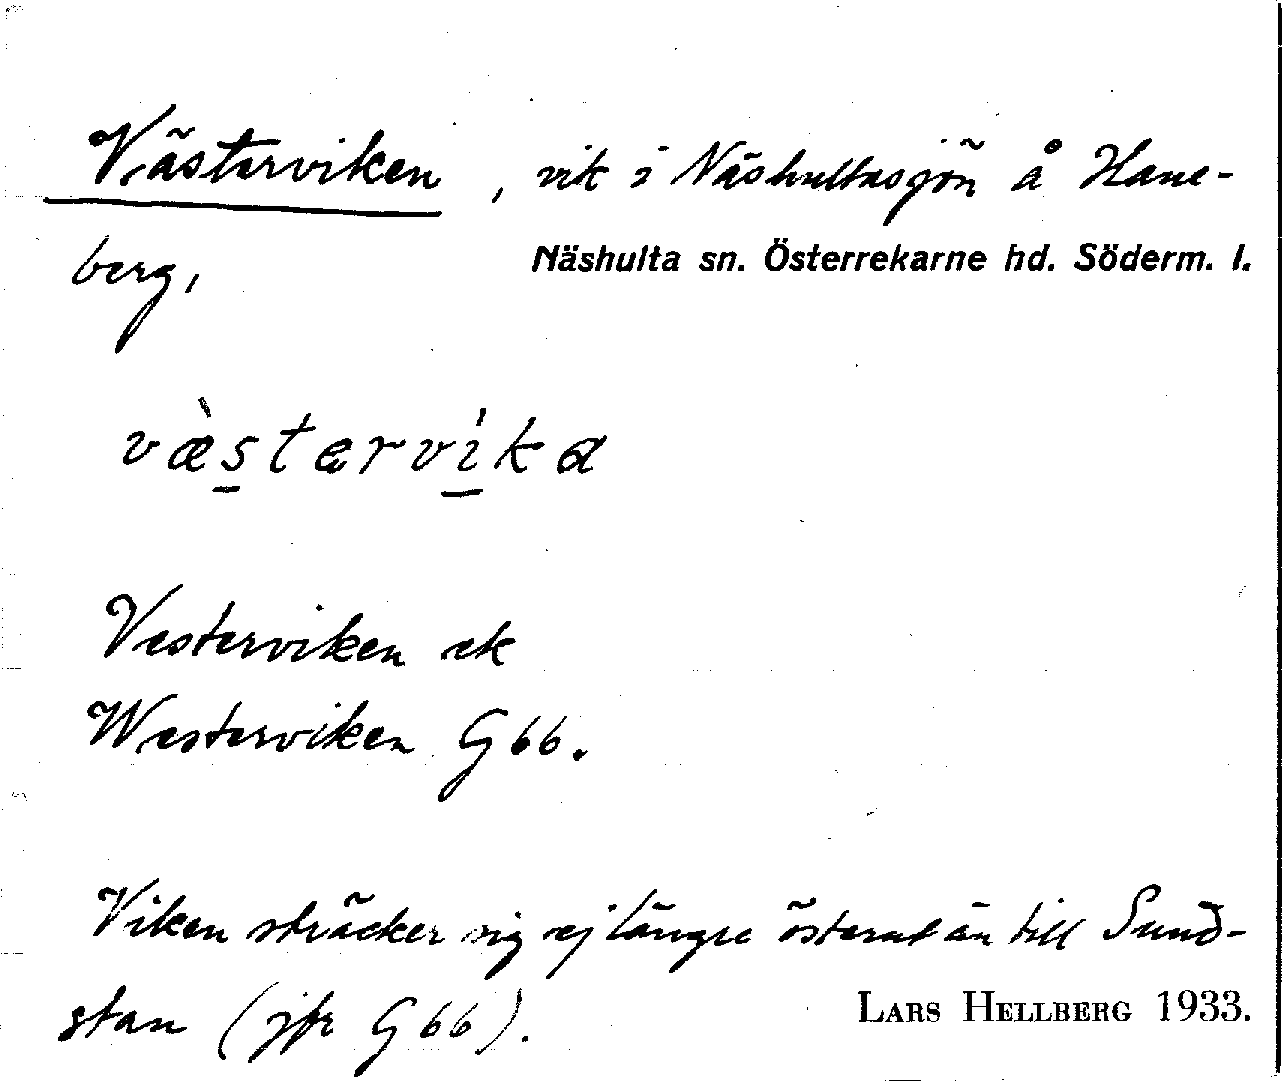 Västerviken, vik i Näshultasjön å Hane-
berg,
Näshulta sn. Österrekarne hd. Söderm. l.
væ̀stərvìka
Vesterviken ek
Westerviken G 66.
Viken sträcker sig ej längre österut än till Sund-
stan (jfr G 66).
LARS HELLBERG 1933.